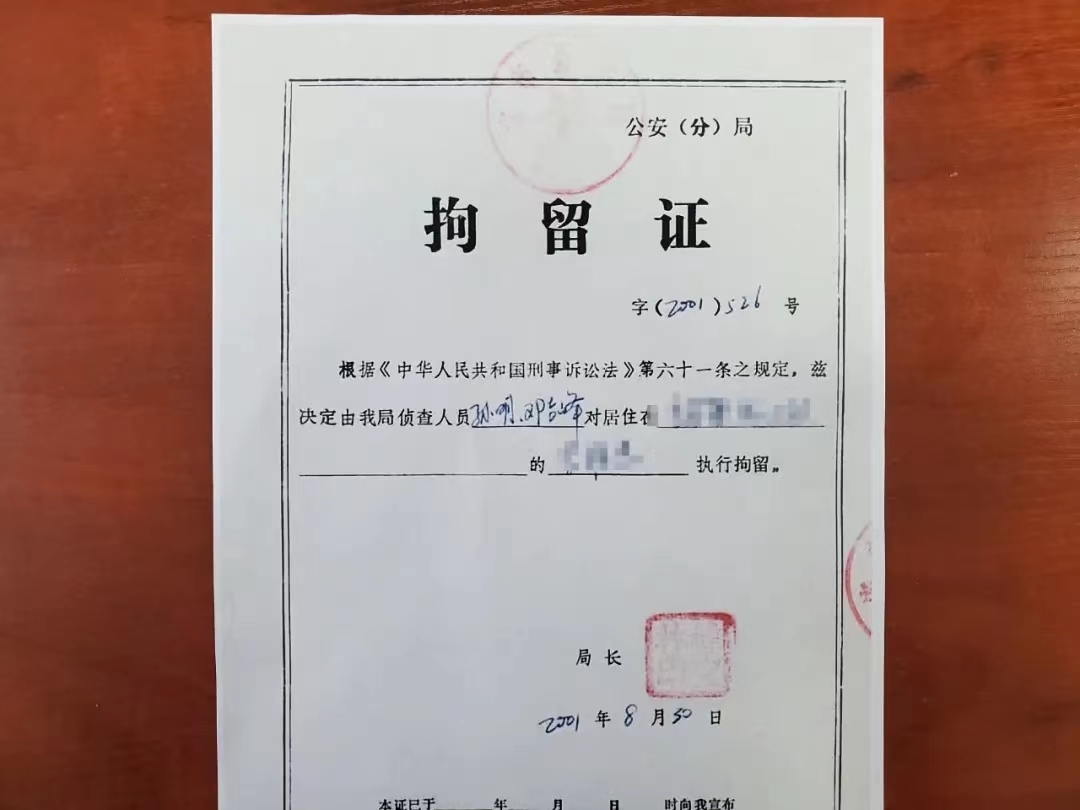 公安（分）局
拘留证
字（2001）526 号
根据《中华人民共和国刑事诉讼法》第六十一条之规定，兹
决定由我局侦查人员孙明、邓吉峰对居住在
的 执行拘留。
局长
2001 年 8 月 30 日
本证已于 年 月 日 时向我宣布